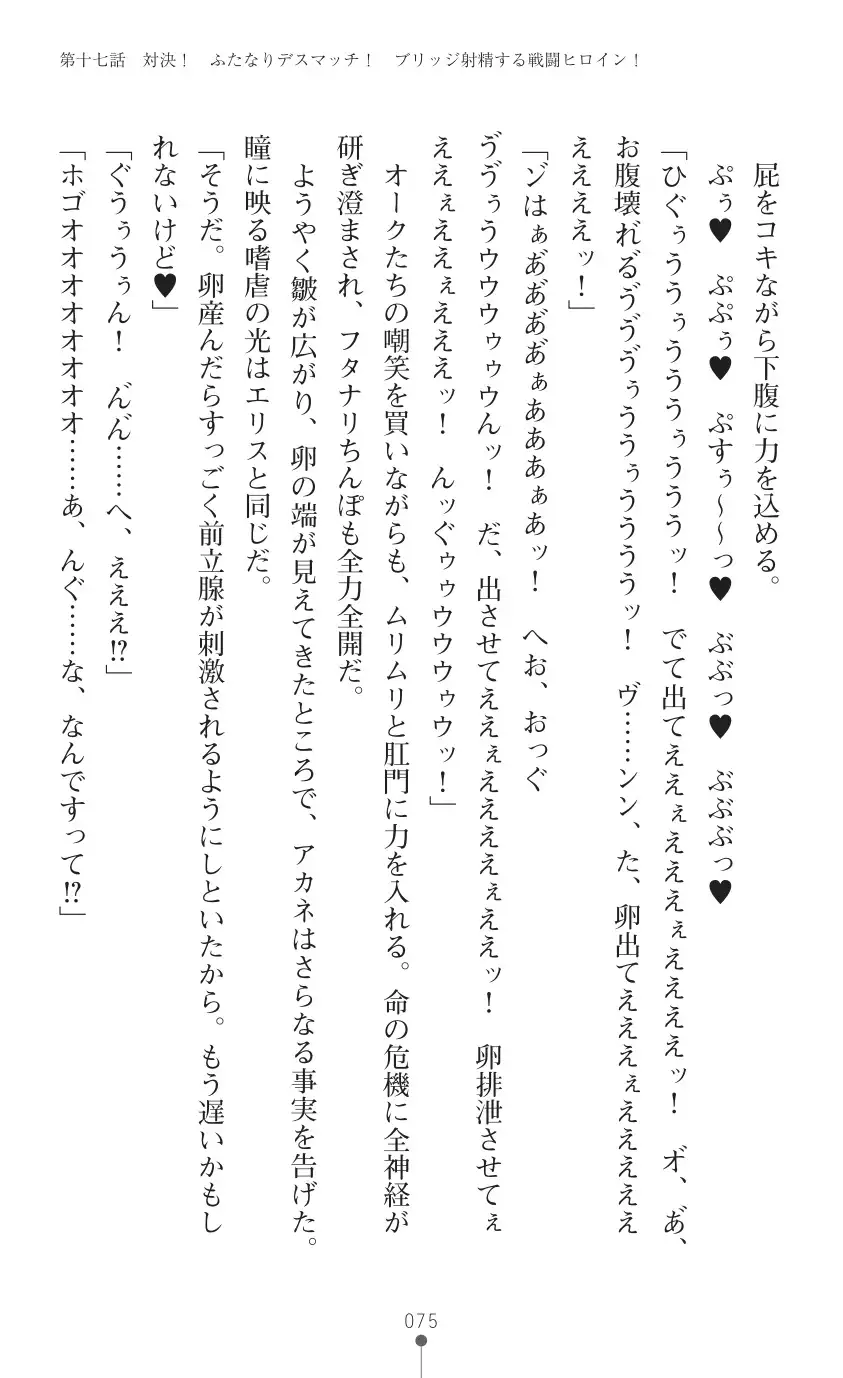 第十七話　対決！　ふたなりデスマッチ！　ブリッジ射精する戦闘ヒロイン！
屁をコキながら下腹に力を込める。
ぷぅ♥　ぷぷぅ♥　ぷすぅ～～っ♥　ぶぶっ♥　ぶぶぶっ♥
「ひぐぅううぅうううぅうううッ！　でて出てええぇえええぇええええッ！　オ゛、あ゛、
お腹壊れるゔゔゔぅううぅううううッ！　ヴ……ンン、た、卵出てえええぇえええええ
ええええッ！」
「ゾはぁあ゛あ゛あ゛あ゛ぁあああぁあッ！　へお、おっぐ
ゔゔぅうウウウゥゥウんッ！　だ、出させてええぇええええぇええッ！　卵排泄させてぇ
ええぇええぇえええッ！　んッぐゥゥウウウゥウッ！」
オークたちの嘲笑を買いながらも、ムリムリと肛門に力を入れる。命の危機に全神経が
研ぎ澄まされ、フタナリちんぽも全力全開だ。
ようやく皺が広がり、卵の端が見えてきたところで、アカネはさらなる事実を告げた。
瞳に映る嗜虐の光はエリスと同じだ。
「そうだ。卵産んだらすっごく前立腺が刺激されるようにしといたから。もう遅いかもし
れないけど♥」
「ぐうぅうぅん！　ん゛ん゛……へ、えええ!?」
「ホゴオオオオオオオオ……あ、んぐ……な、なんですって!?」
075